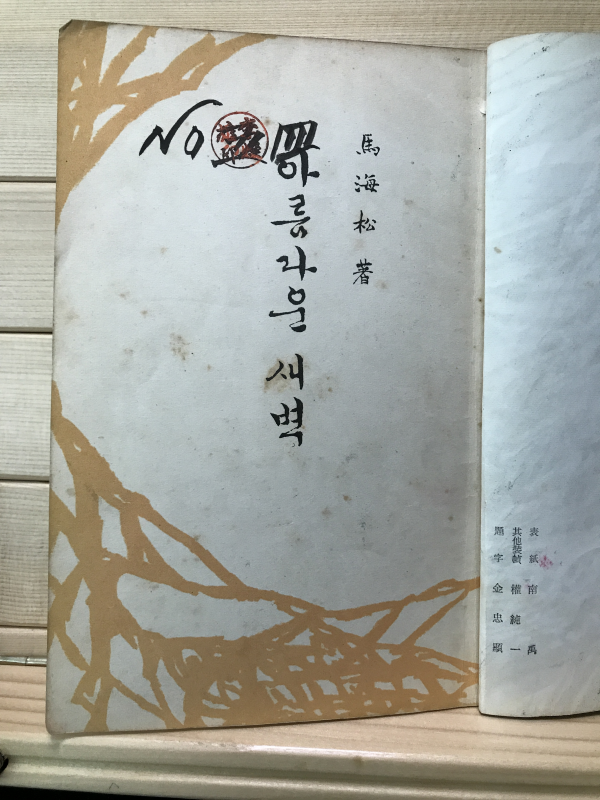 表紙 南 禹
其他裝幀 權純一
題字 金忠顯
馬海松 著
아름다운 새벽
No